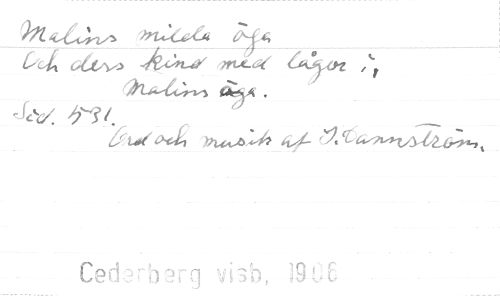 Malins milda öga
Och dess kind med lågor i,
Malins öga.
Sid. 531.
Ord och musik af J. Dannström.
Cederberg visb, 1906